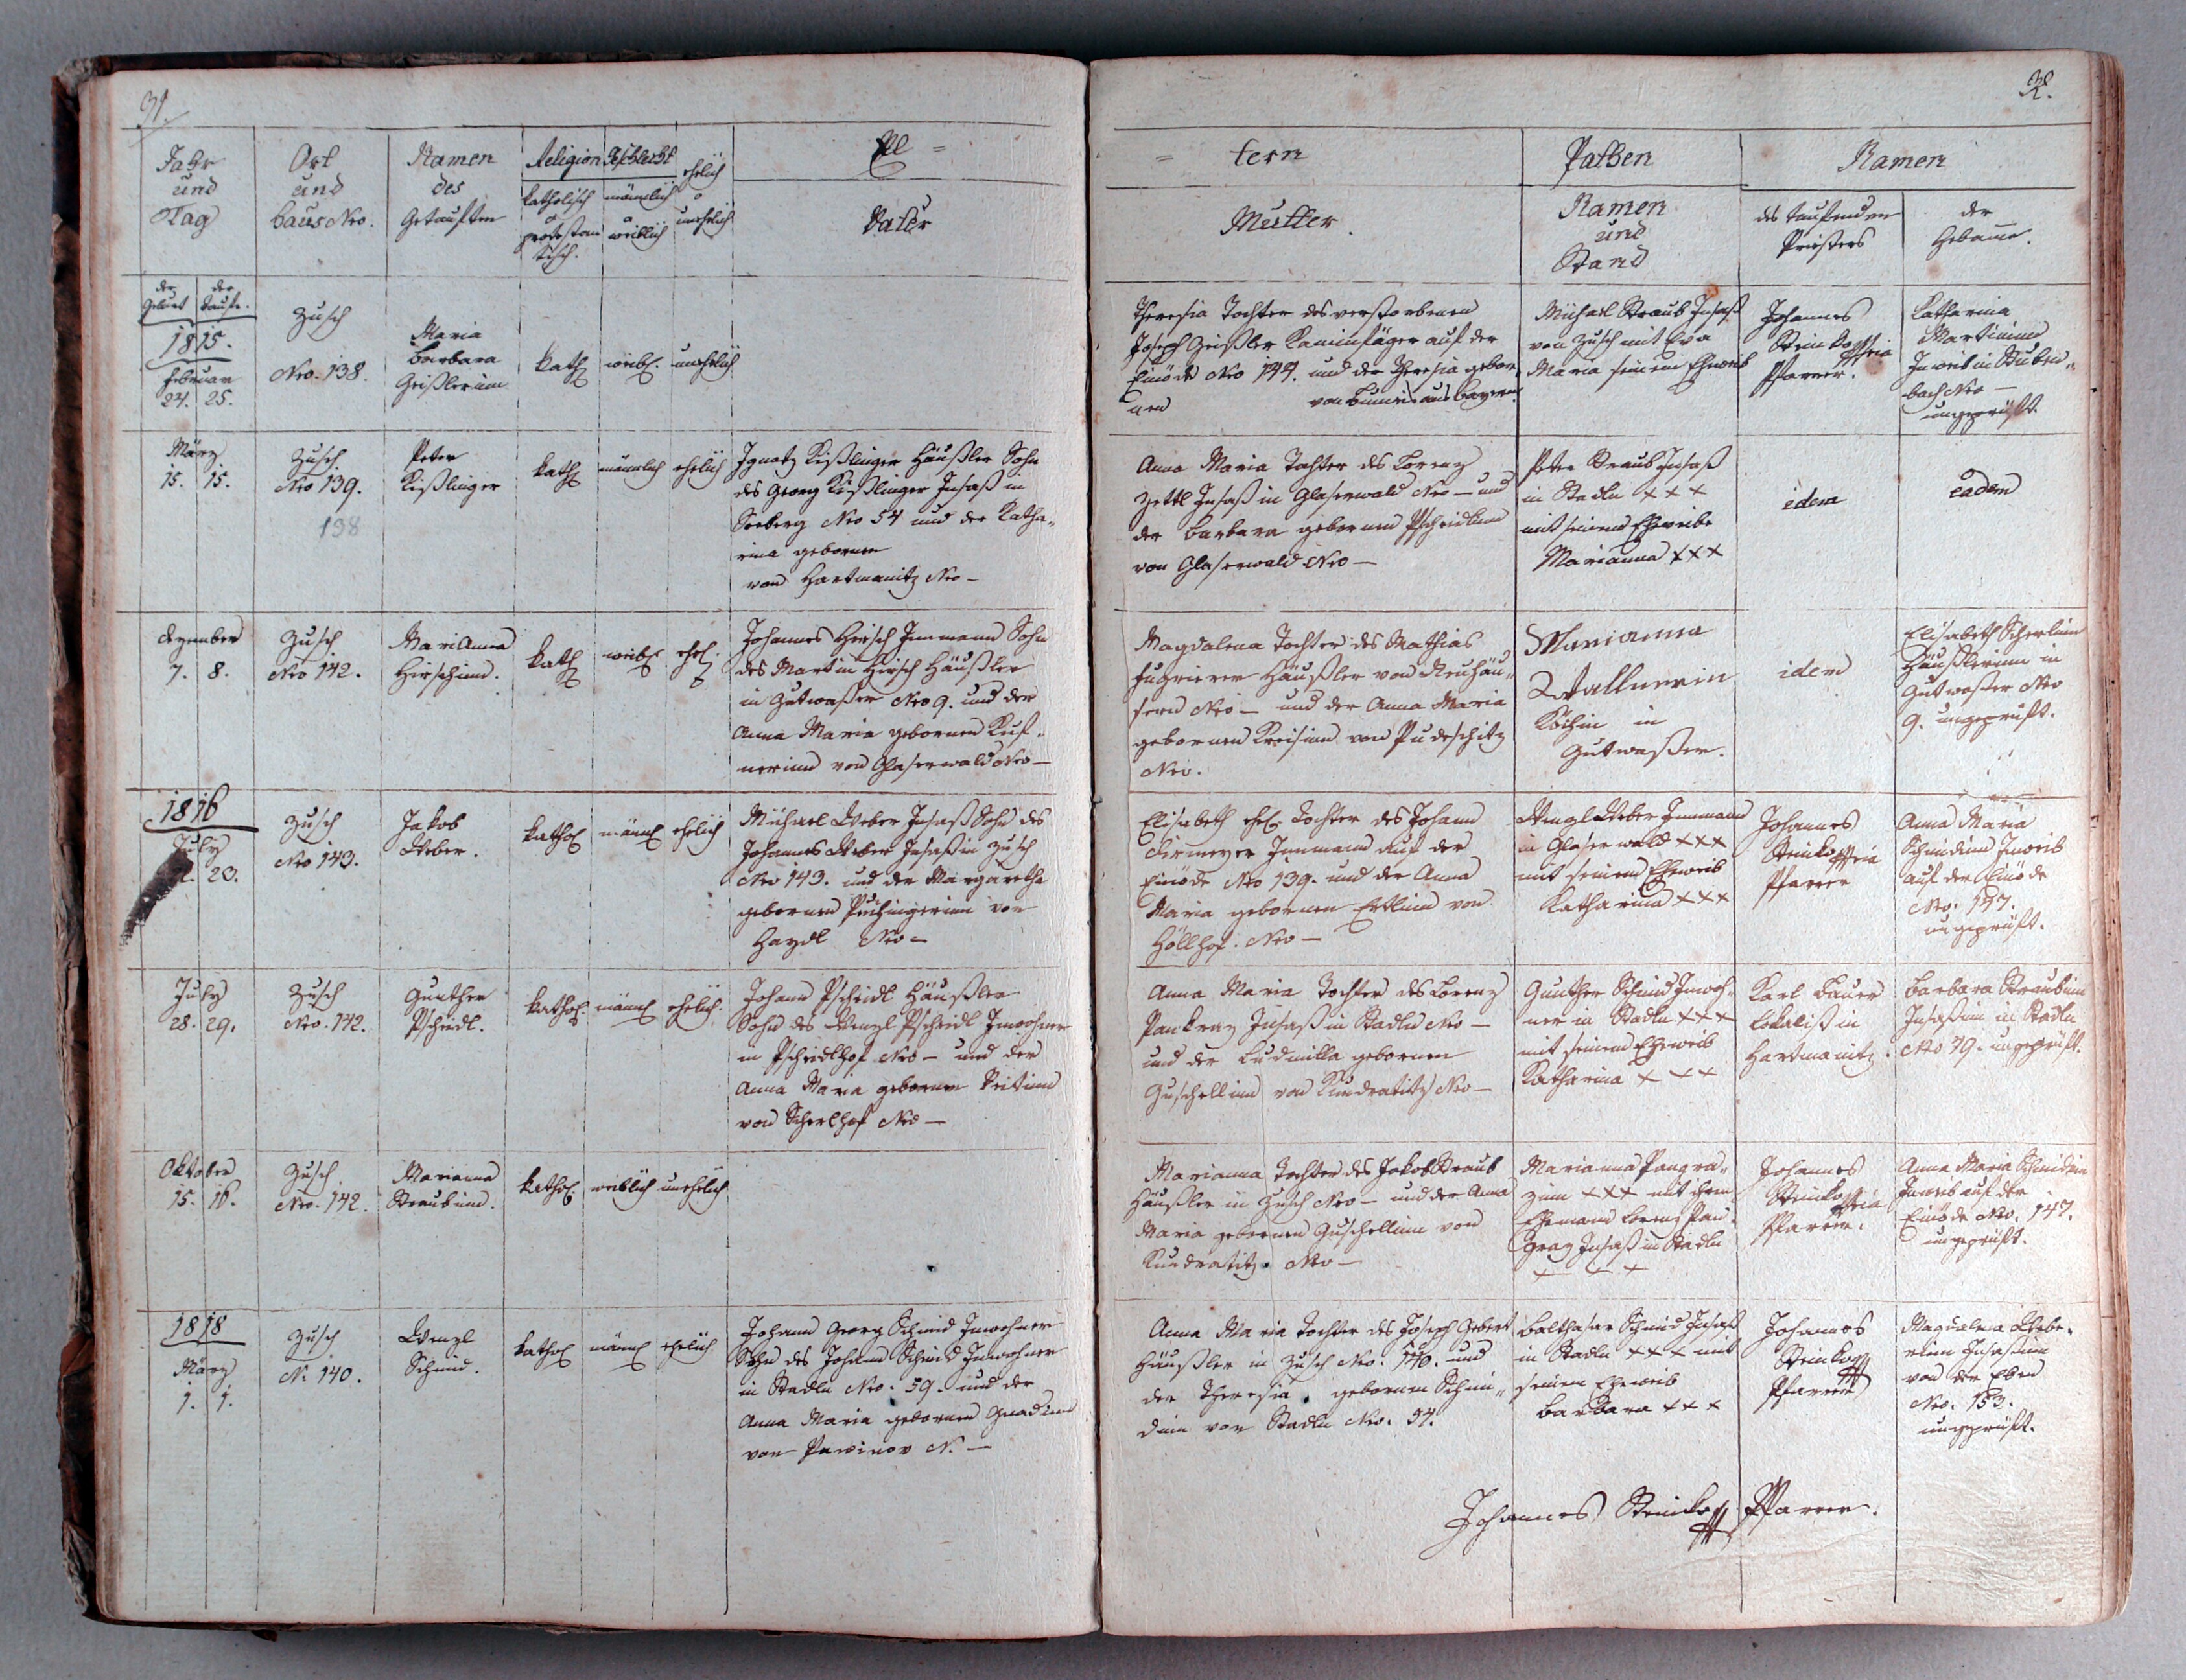 31.
Jahr
und
Tag
Ort
und
Haus Nro.
Namen
des
Getauften
Religion
katholisch
o
protestan
tisch.
Geschlecht
männlich
o
weiblich
ehelich
o
unehelich
El =
Vater
der
Geburt
der
Taufe.
1815.
Februar
24. 25.
Zusch
Nro. 138.
Maria
Barbara
Geißlerinn
kath
weibl.
unehelich
März
15. 15.
Zusch
Nro 139.
138
Peter
Kißlinger
kath
männlich
ehelich
Ignatz Kißlinger Häußler Sohn
des Georg Kißlinger Insaß in
Seeberg Nro 54 und der Katha„
rina gebornen
von Hartmanitz Nro –
Dezember
7. 8.
Zusch
Nro 142.
Marianna
Hirschinn.
kath
weibl.
ehel.
Johannes Hirsch Innmann Sohn
des Martin Hirsch Häußler
in Gutwaßer Nro 9. und der
Anna Maria gebornen Kuf„
nerinn von Glaserwald Nro –
1816
July
23.
Zusch
Nro 143.
Jakob
Weber.
kathol
männl
ehelich
Michael Weber Insaß Sohn des
Johannes Weber Insaß in Zusch
Nro 143. und der Margaretha
gebornen von
Haydl Nro –
July
28. 29.
Zusch
Nro. 142.
Gunther
Pscheidl.
kathol.
männl
ehelich.
Johann Pscheidl Häußler
Sohn des Wenzl Pscheidl Inwohner
in Pscheidlhof Nro – und der
Anna Maria gebornen Veitinn
von Scherlhof Nro –
Oktober
15. 16.
Zusch
Nro. 142.
Marianna
Straubinn.
kathol
weiblich
unehelich
1818
März
1. 1.
Zusch
N. 140.
Wenzl
Schmid.
kathol
männl
ehelich
Johann Georg Schmid Inwohner
Sohn des Johann Schmid Inwohner
in Stadln Nro. 59. und der
Anna Maria gebornen Gnadlinn
von Pawinov N. –
32.
= tern
Mutter.
Pathen
Namen
und
Stand
Namen
des taufenden
Priesters
der
Hebame.
Theresia Tochter des verstorbenen
Joseph Geißler Kaminfäger auf der
Einöde Nro 144. und der Theresia gebor„
nen von aus Bayern.
Michael Straub Insaß
von Zusch mit Eva
Maria seinem Eheweib
Johannes
Steinko
Pfarrer.
Katharina
Martininn
Inweib in Stuben„
bach Nro –
ungeprüft.
Anna Maria Tochter des Lorenz
Zettl Insaß in Glaserwald Nro – und
der Barbara gebornen Pscheidlinn
von Glaserwald Nro –
Peter Straub Insaß
in Stadln + + +
mit seinem Eheweibe
Marianna + + +
idem
eadem
Magdalena Tochter des Mathias
Häußler von Neuhäu„
sern Nro – und der Anna Maria
gebornen von Pudeschitz
Nro.
Marianna
Köchin in
Gutwaßer.
idem
Elisabeth Scherlinn
Häußlerinn in
Gutwaßer Nro
9. ungeprüft.
Elisabeth ehel. Tochter des Johann
Innmann auf der
Einöde Nro 139. und der Anna
Maria gebornen Ertlinn von
Höllhof. Nro –
Wenzl Weber Innmann
in Glaserwald + + +
mit seinem Eheweib
Katharina + + +
Johannes
Steinko
Pfarrer
Anna Maria
Schmidinn Inweib
auf der Einöde
Nro. 147.
ungeprüft.
Anna Maria Tochter des Lorenz
Pankraz Insaß in Stadln Nro –
und der Ludmilla gebornen
Guschellinn von Kundratitz Nro –
Gunther Schmid Inwoh„
ner in Stadln + + +
mit seinem Eheweib
Katharina + + +
Karl Bauer
Lokalist in
Hartmanitz.
Barbara Straubinn
Insaßin in Stadln
Nro 79. ungeprüft.
Marianna Tochter des Jakob Straub
Häußler in Zusch Nro – und der Anna
Maria gebornen Guschellinn von
Kundratitz. Nro –
Marianna Pangra„
zinn + + + mit ihrem
Ehemann Lorenz Pan„
graz Insaß in Stadln
+ + +
Johannes
Steinko
Pfarrer.
Anna Maria Schmidinn
Inweib auf der
Einöde Nro. 147.
ungeprüft.
Anna Maria Tochter des Joseph Gebert
Häußler in Zusch Nro. 140. und
der Theresia gebornen Schmi„
dinn von Stadln Nro. 54.
Balthasar Schmid Insaß
in Stadln + + + mit
seinem Eheweib
Barbara + + +
Johannes
Steinko
Pfarrer
Magdalena Webe„
rinn Insaßinn
von der Eben
Nro. 153.
ungeprüft.
Johannes Pfarrer.